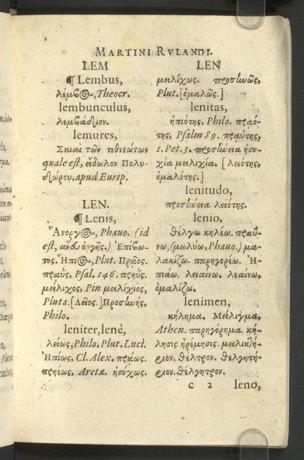 MARTINI RVLANDI.
LEM
¶ Lembus,
λέμβος, Theocr.
lembunculus,
λεμβάδιον.
lemures,
Σκιαὶ τῶν τεθνεώτων
quale est, εἴδωλον Πολυ-
δώρου, apud Eurip.
LEN.
¶ Lenis,
Ἄνοργος, Phauo. (id
est,
Ἤπιος, Plut. Πρᾶος.
πραΰς, Psal. 146. πρηΰς.
μείλιχος, Pin μείλιχος,
Pluta. [Λεῖος.] Προσηνής,
Philo.
leniter, lenè,
λείως, Philo. Plut. Luci.
Ἠπίως. Cl. Alex. πράως.
πρηέως. Aretæ. ἡσύχως.
LEN
μειλίχως. προσηνῶς,
Plut. [ὁμαλῶς.]
lenitas,
ἠπιότης. Philo. πραό-
της, Psalm 89. πραΰτης,
1. Pet. 3. προσήνεια ἡσυ-
χία μειλιχία. [λειότης,
ὁμαλότης.]
lenitudo,
προσήνεια. λειότης.
lenio,
θέλγω κηλέω. πραΰ-
νω, (μωλύω, Phauo.) μα-
λακίζω. παρηγορέω. Ἠ-
πιάω. λειαίνω, λεαίνω,
ὁμαλίζω.
lenimen,
κήλημα. Μείλιγμα,
Athen. παρηγόρημα. κή-
λησις ἠρέμησις. μειλικτή-
ριον. θέλκτρον. θελγητή-
ριον. θέλγητρον.
c 2 leno,